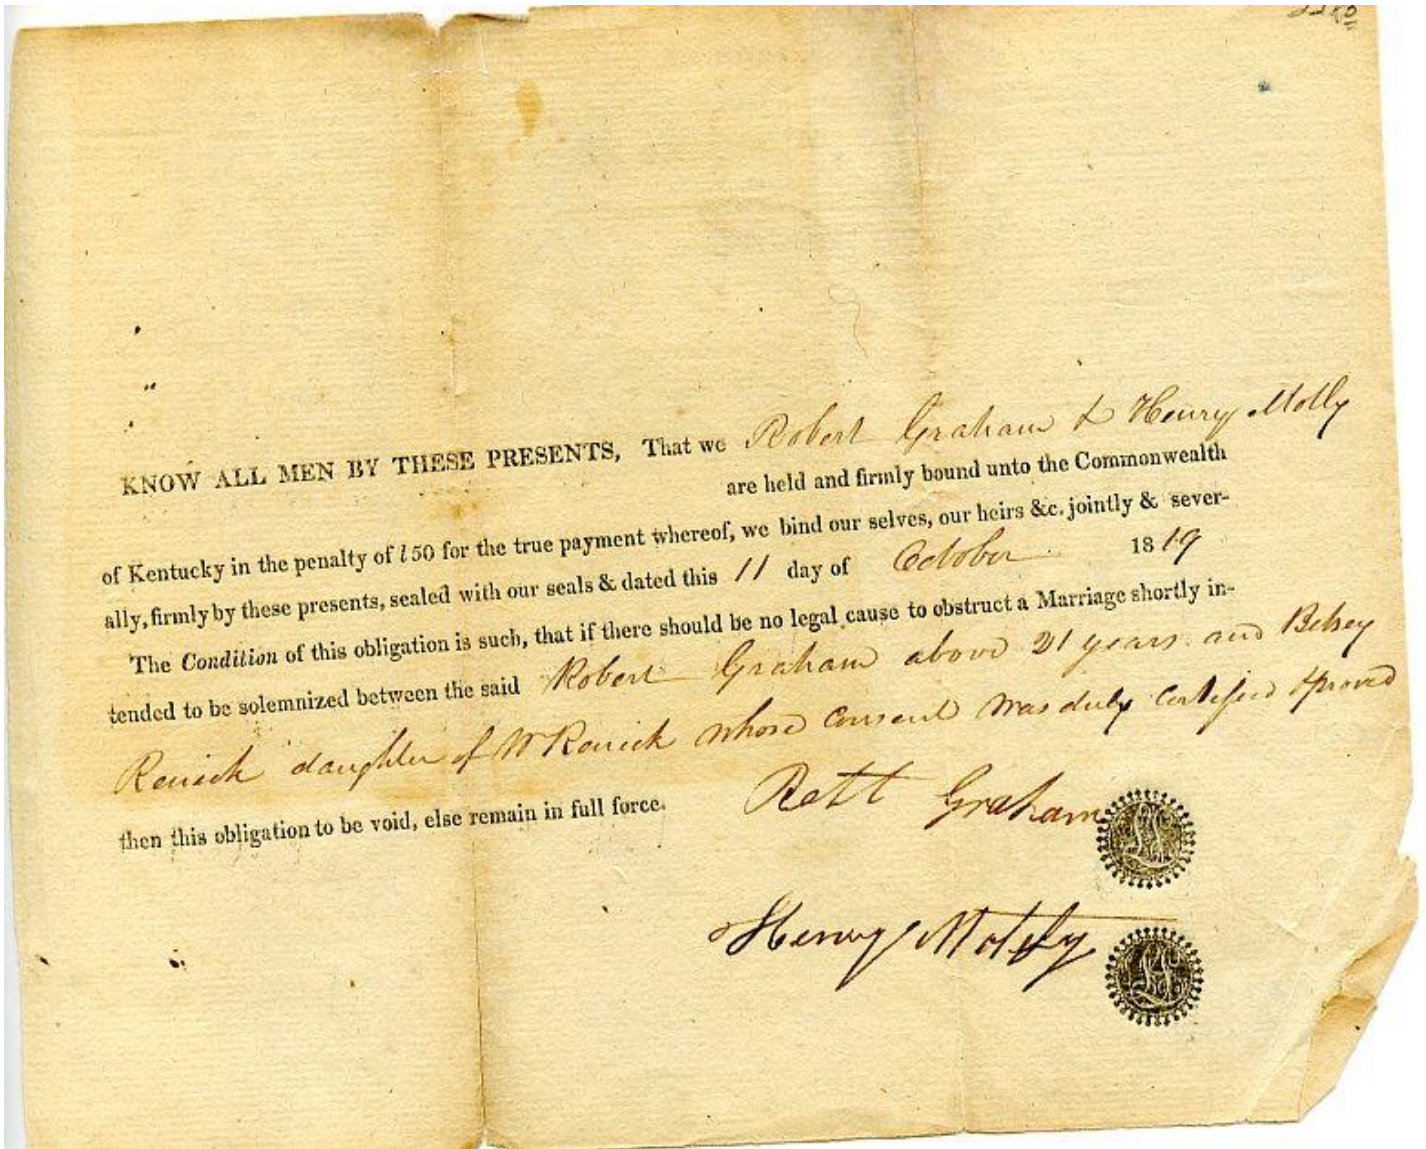 KNOW ALL MEN BY THESE PRESENTS, That we Robert Graham & Henry Motly
are held and firmly bound unto the Commonwealth
of Kentucky in the penalty of l 50 for the true payment whereof, we bind our selves, our heirs &c. jointly & sever-
ally, firmly by these presents, sealed with our seals & dated this 11 day of October 1819
The Condition of this obligation is such, that if there should be no legal cause to obstruct a Marriage shortly in-
tended to be solemnized between the said Robert Graham above 21 years and Betsey
Renick daughter of Wm Renick whose consent was duly certified & proved
then this obligation to be void, else remain in full force.
Graham
Henry Motley